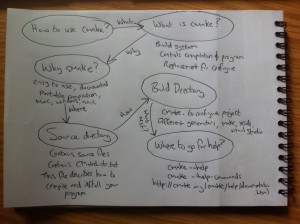 How to use cmake?
What
What is cmake?
Build system
Controls compilation of program
Replacement for configure
Why
Why cmake?
easy to use, documented
Portable compilation,
mac, windows, unix
Where
Build Directory
cmake - to configure project
different generators, make, xcode
visual studio
How
Source directory
Contains source files
Contains CMakeLists.txt
This file describes how to
compile and install your
program
Where to go for help?
cmake --help
cmake --help-commands
html